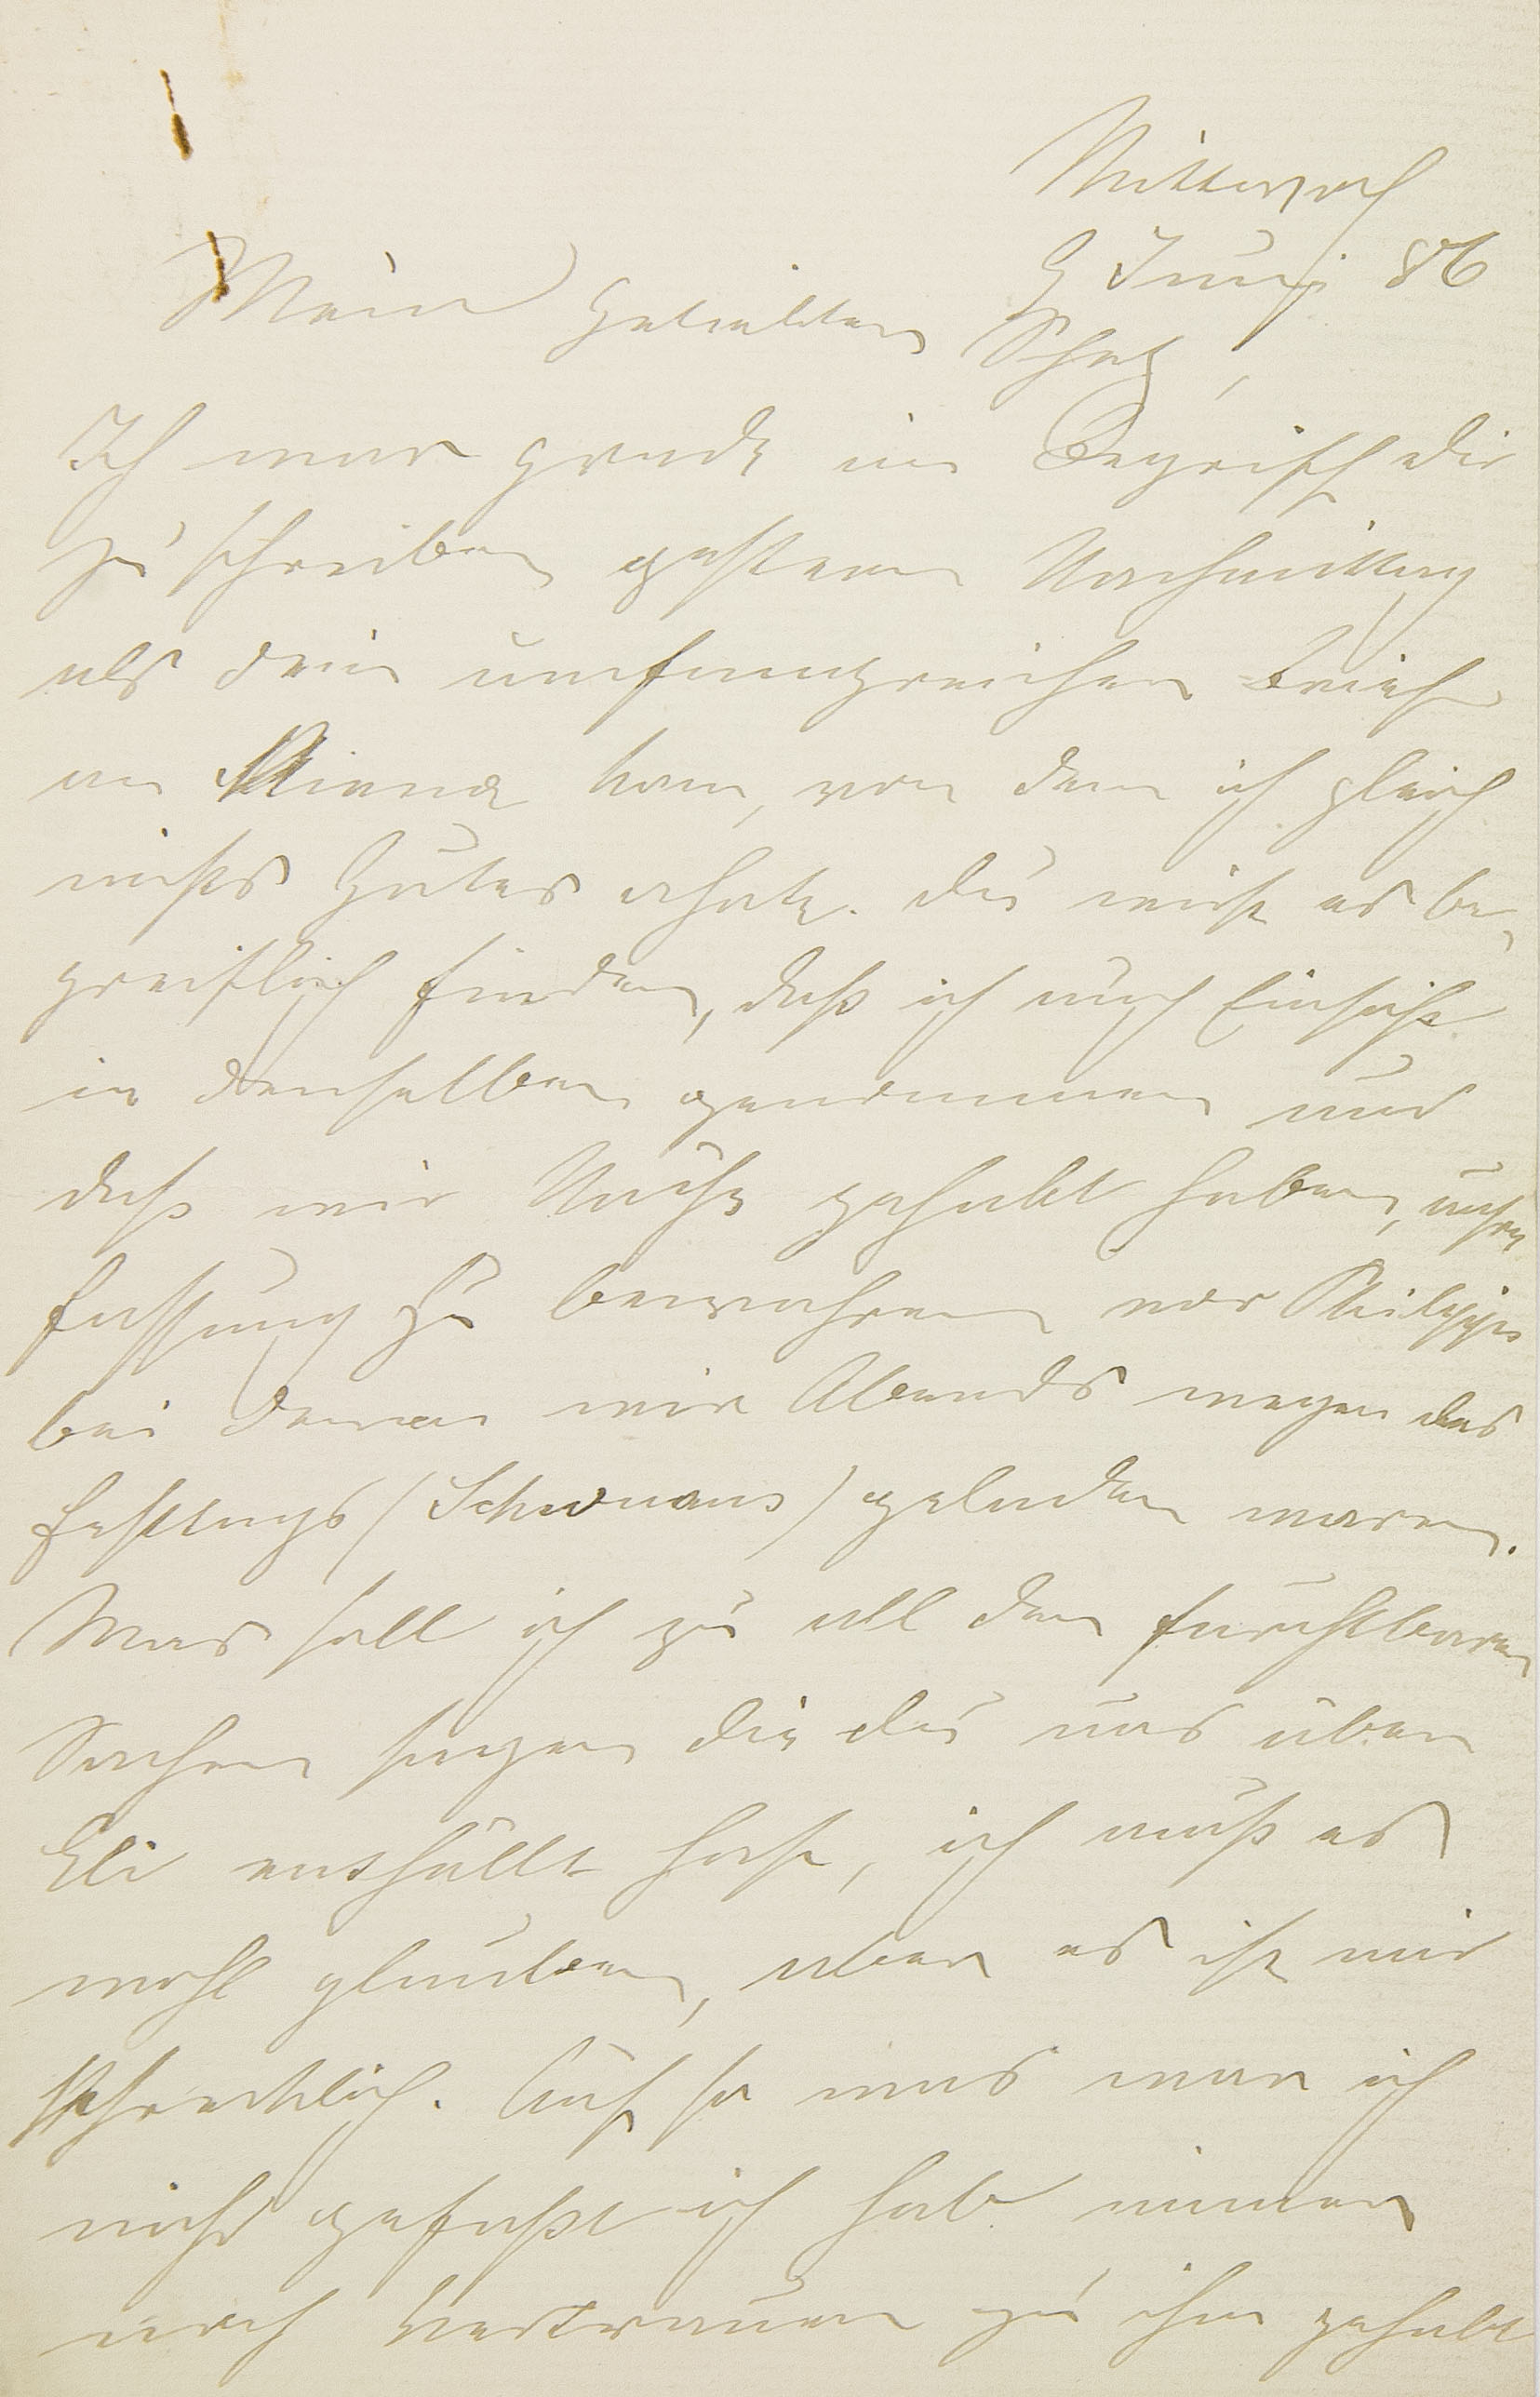 Mittwoch
9 Juni 86
Mein geliebter Schatz,
Ich war grade im Begriff dir
zu schreiben gestern Nachmittag
als dein umfangreicher Brief
an Minna kam, von dem ich gleich
nichts Gutes ahnte. Du wirst es be-
greiflich finden, daß ich auch Einsicht
in denselben genommen und
daß wir Mühe gehabt haben, unsre
Fassung zu bewahren vor Philipps
bei denen wir Abends wegen des
Festtags (Schewuaus) geladen waren.
Was soll ich zu all den furchtbaren
Sachen sagen die du uns über
Eli enthüllt hast, ich muß es
wohl glauben, aber es ist mir
schrecklich. Auf so was war ich
nicht gefaßt ich hab immer
noch Vertrauen zu ihm gehabt